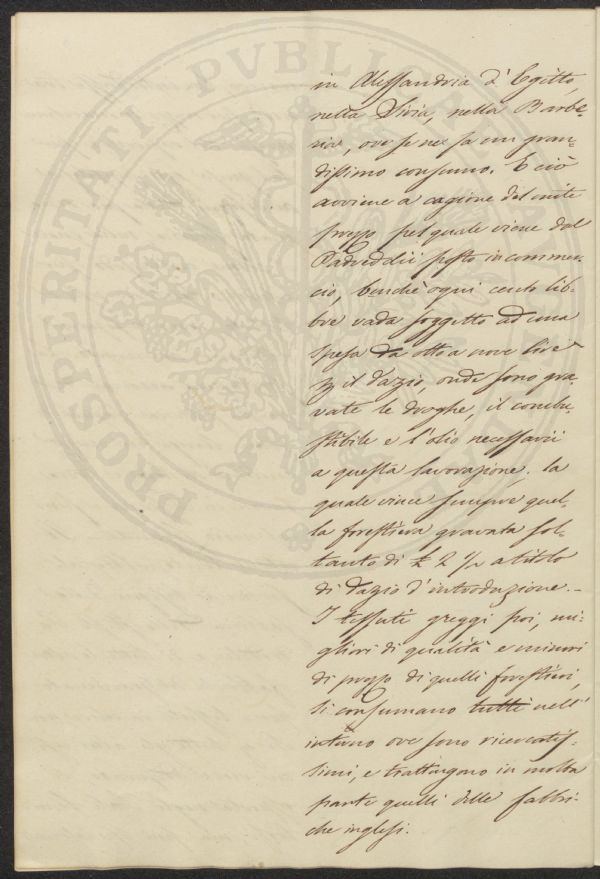 in Alessandria d'Egitto,
nella Siria, nella Barbe-
ria, ove se ne fa un gran-
dissimo consumo. E ciò
avviene a cagione del mite
prezzo pel quale viene dal
Padreddii posto in commer-
cio, benchè ogni cento lib-
bre vada soggetto ad una
spesa da otto a nove lire
il dazio, onde sono gra-
vate le droghe, il combu-
stibile e l'olio necessarii
a questa lavorazione. la
quale vince sempre quel-
la forestiera gravata sol-
tanto di £ 2 1/2 a titolo
di dazio d'introduzione.-
I tessuti greggi poi, mi-
gliori di qualità e minori
di prezzo di quelli forestieri,
si consumano tutti nell'
interno ove sono ricercatis-
simi, e trattengono in molta
parte quelli delle fabbri-
che inglesi.
PROSPERITATI PVBLICAE